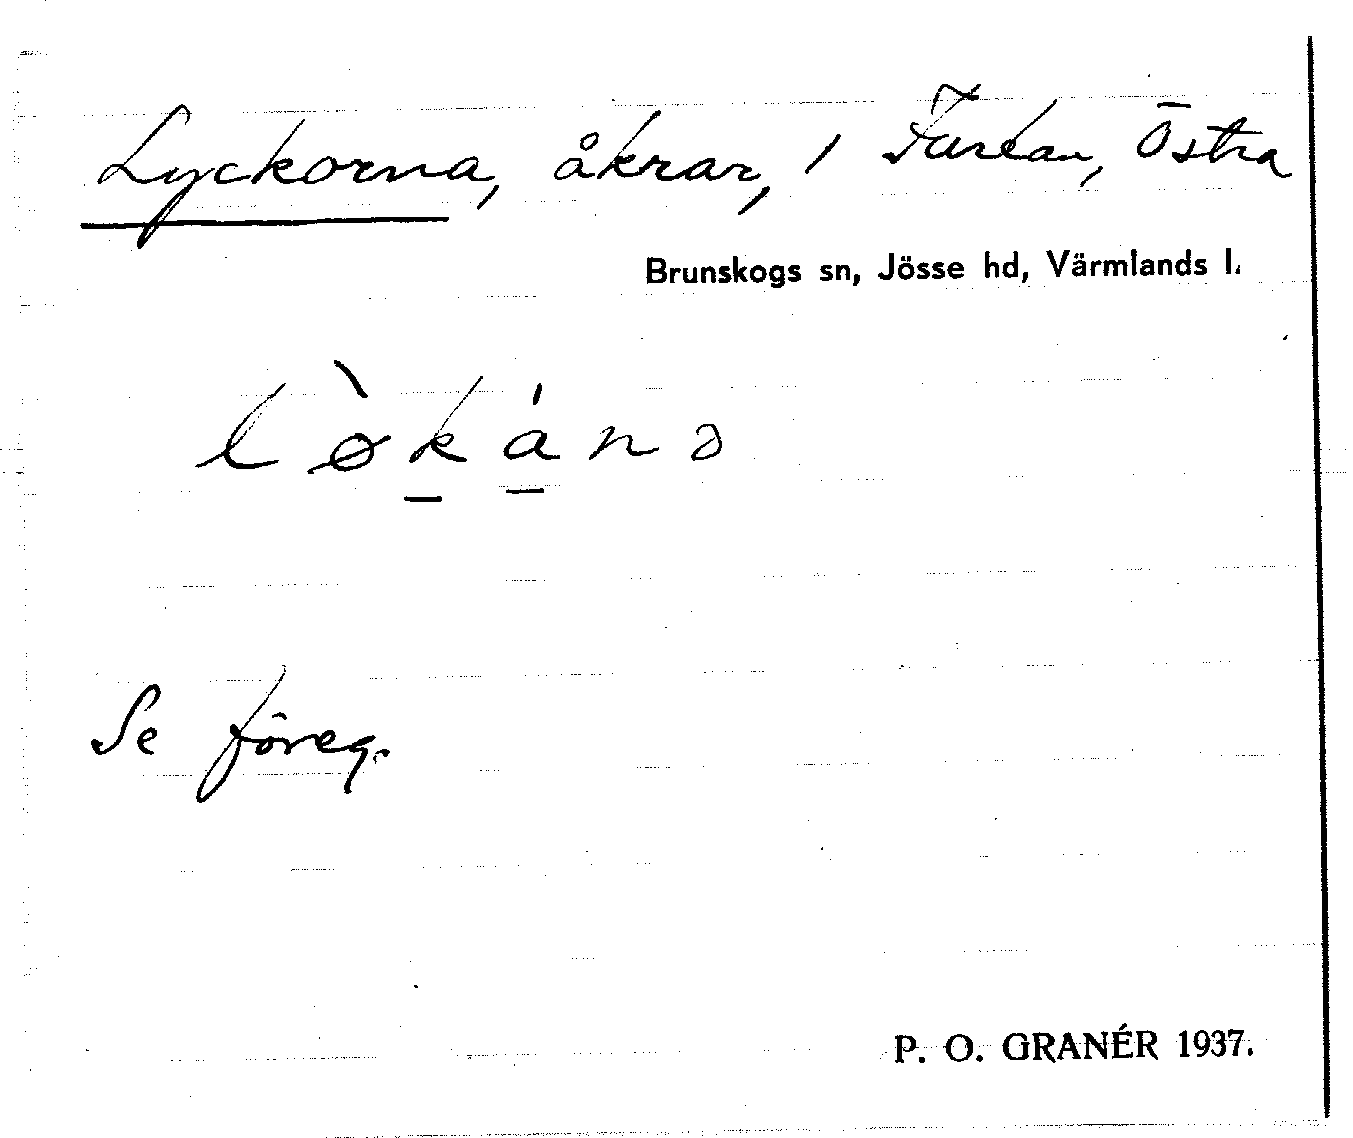 Lyckorna, åkrar, / Furtan, Östra
Brunskogs sn, Jösse hd, Värmlands l.
lø̀kánə
Se föreg.
P. O. GRANÉR 1937.